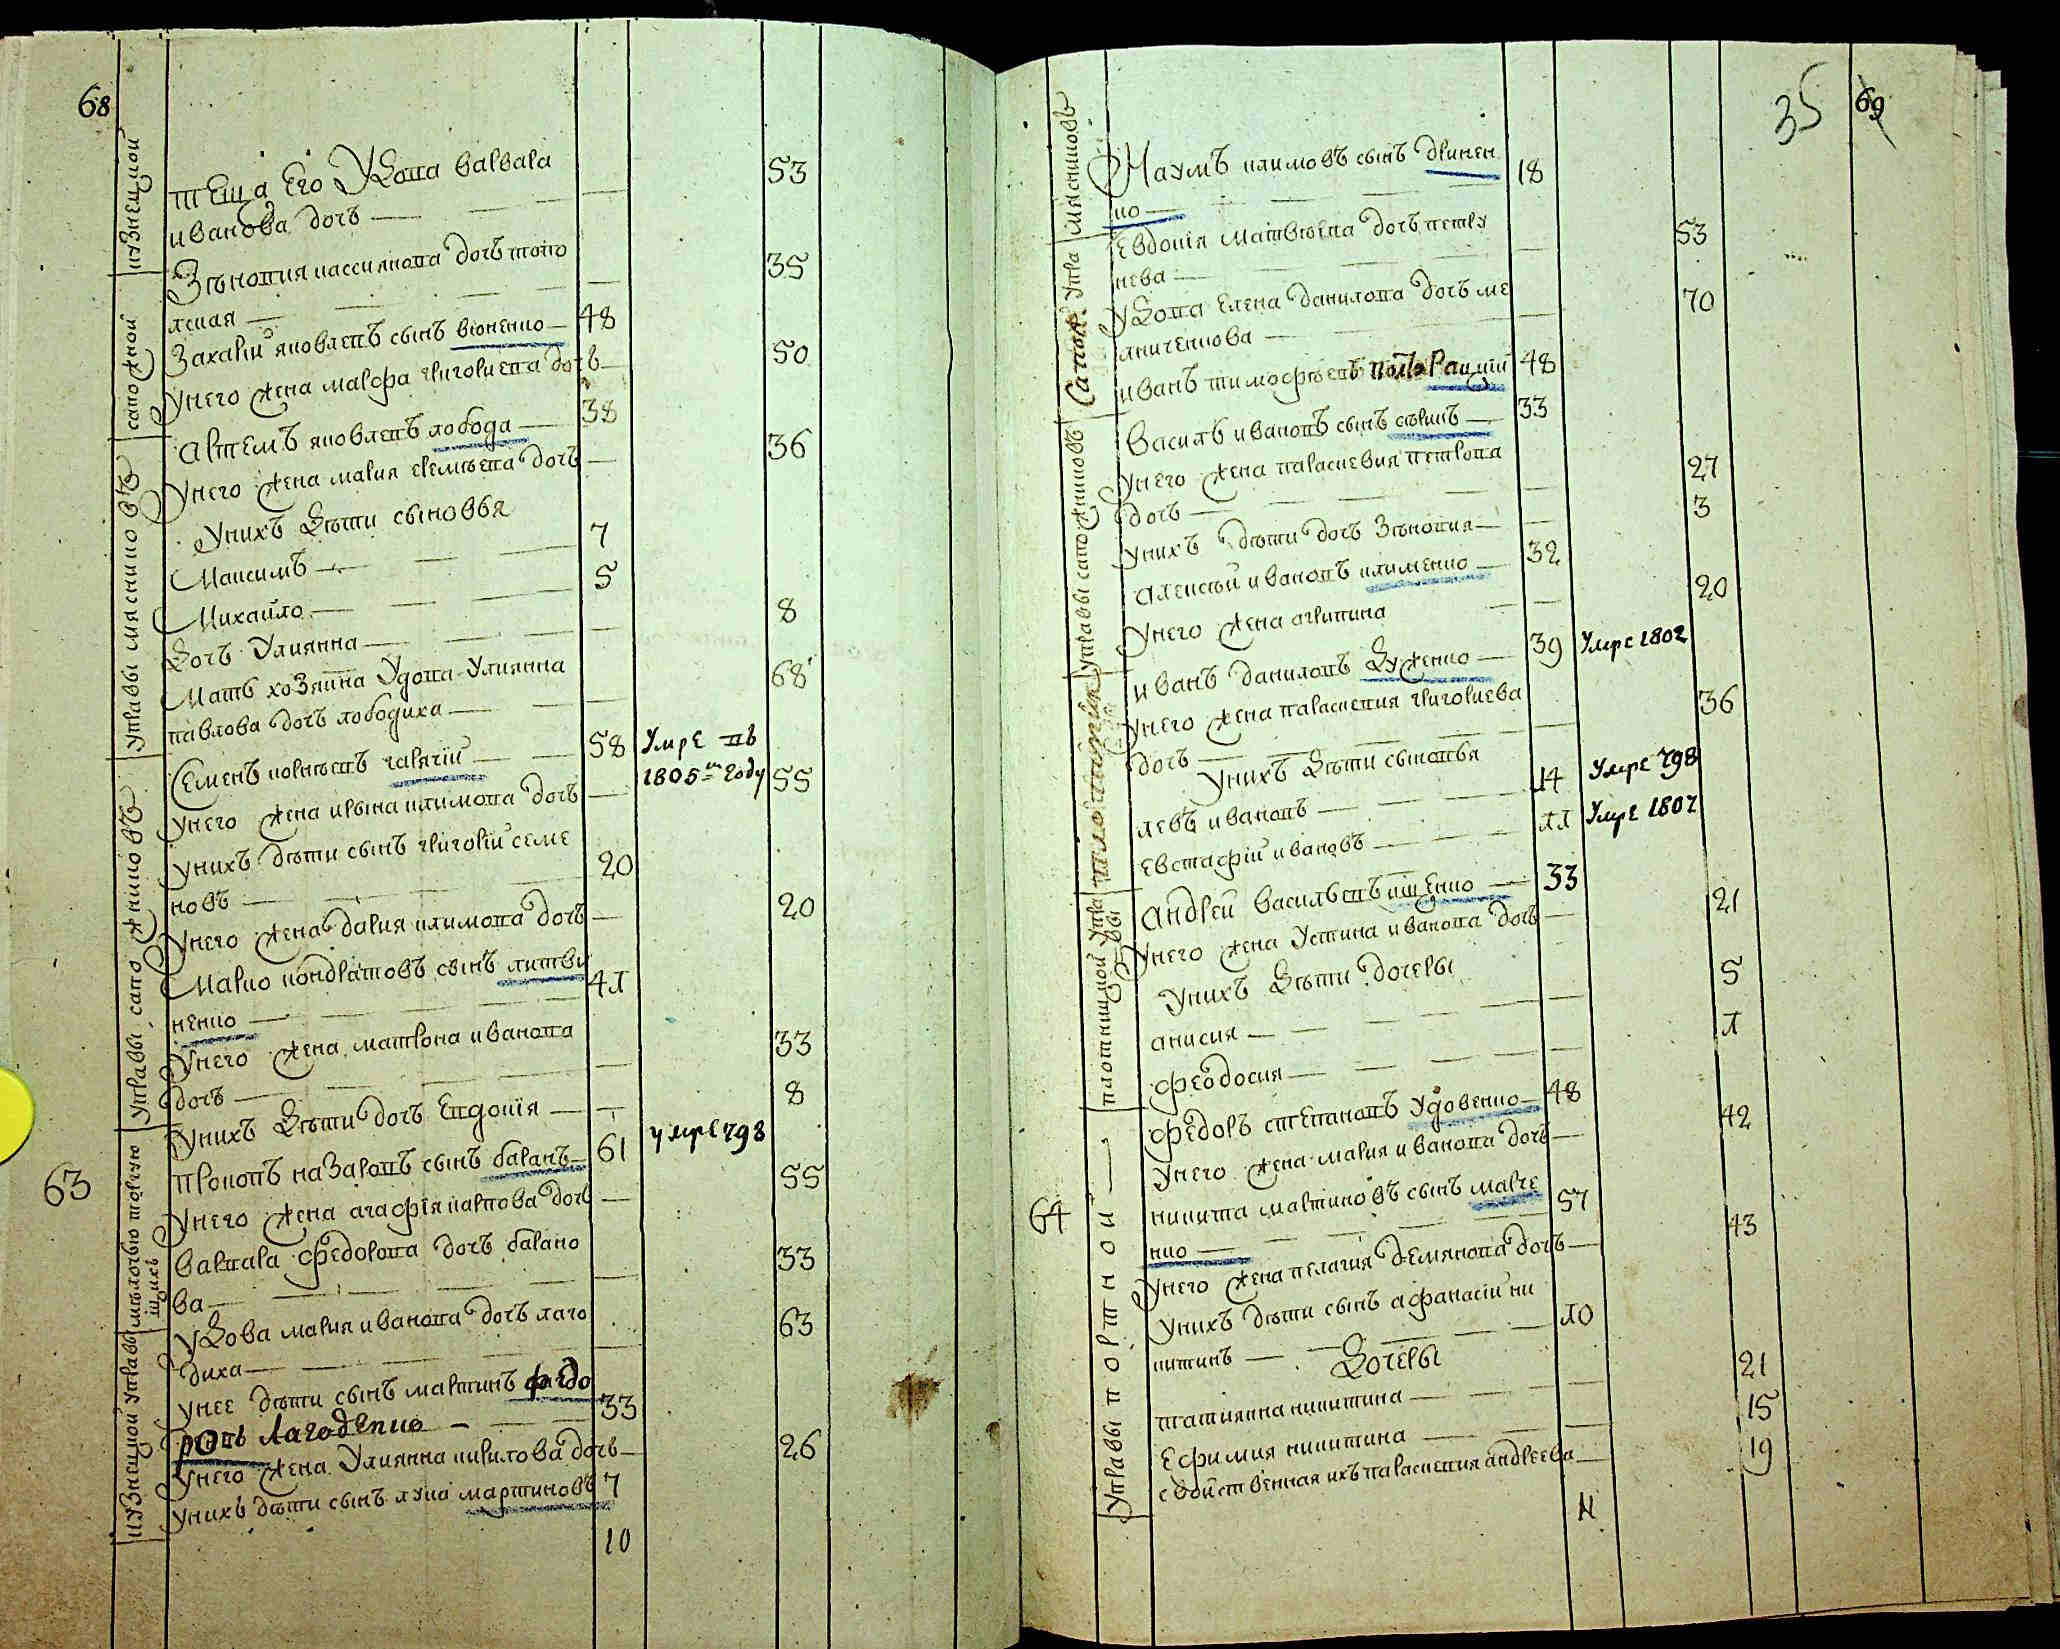 68
кузнецкой
теща его удова варвара 53
иванова дочь
Зѣновия кассиянова дочь токо 35
лская
сапожной
Захарий яковлевъ сынъ вюненко 48
унего жена марфа григориева дочь 50
артемъ яковлевъ лобода 38
унего жена мария еремѣева дочь 36
унихъ дѣти сыновья
Максимъ 7
Михайло 5
дочь Улиянна 8
мать хозяина Удова Улиянна 68
павлова дочь лободиха
управы мяснико въ
Семенъ корнѣевъ 58 умре въ
1805м году
унего жена ирына климова дочь 55
унихъ дѣти сынъ григорий семе
новъ 20
унего жена дария климова дочь 20
Марко кондратовъ сынъ литви
ненко 41
унего жена матрона иванова 33
дочь
унихъ дѣти дочь Евдокїя 8
управы сапожнико въ
прокопъ назаровъ сынъ баранъ 61 умре 798
унего жена агафїя карпова дочь 55
варвара федорова дочь барано 33
ва
удова мария иванова дочь лаго 63
диха
63
унее дѣти сынъ мартинъ федо
ровъ Лагоденко 33
унего жена Улиянна кирилова дочь 26
унихъ дѣти сынъ лука мартиновъ 7
кузнецкой управы
10
35 69
Наумъ климовъ сынъ
ко 18
Евдокїя матвѣева дочь петру 53
нева
удова елена данилова дочь ме 70
лниченкова
иванъ тимофѣевъ 48
василь ивановъ сынъ 33
унего жена параскевия петрова 27
дочь
унихъ дѣти дочь Зѣновия 3
алексѣй ивановъ клименко 32
унего жена агрипина 20
управы сапожниковъ
иванъ даниловъ дуженко 39 умре 1802
унего жена параскевия григориева 36
дочь
унихъ дѣти сыновья
левъ ивановъ 14 умре 798
евстафїй ивановъ 11 умре 1807
андрей васильевъ ищенко 33
унего жена Устина иванова дочь 21
унихъ дѣти дочеры
анисия 5
феодосия 1
плотницкой управы
федоръ степановъ удовенко 48
унего жена мария иванова дочь 42
64
никита мартиновъ сынъ марче
нко 57
унего жена пелагия демянова дочь 43
унихъ дѣти сынъ афанасїй ни
китинъ 10
дочеры
татиянна никитина 21
Ефимия никитина 15
свойственная ихъ параскевия андреева 19
управы портной
11